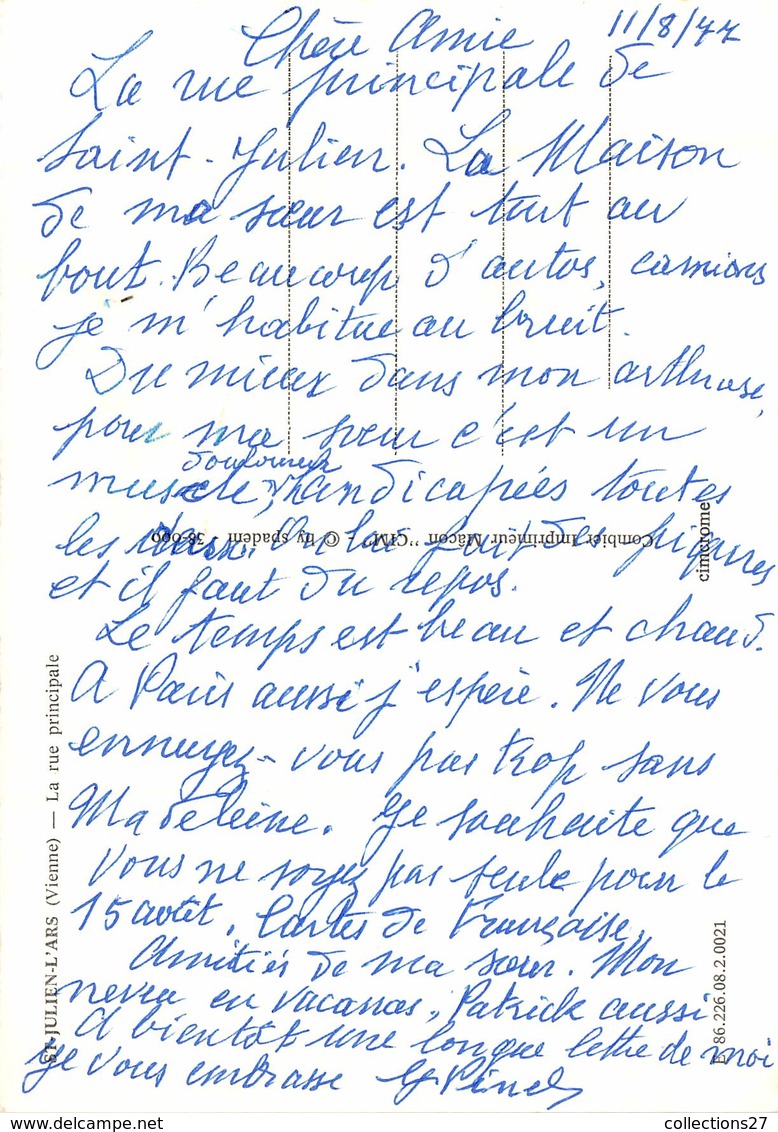 11/8/77
Chère Amie
La rue principale de
Saint-Julien. La Maison
de ma sœur est tout au
bout. Beaucoup d'autos, camions
je m'habitue au bruit.
Du mieux dans mon arthrose,
pour ma sœur c'est un
douloureux
muscle, handicapées toutes
les On lui fait des piqures
et il faut du repos.
Le temps est beau et chaud.
A Paris aussi j'espère. Ne vous
ennuyez-vous pas trop sans
Madeleine. Je souhaite que
vous ne soyez pas seule pour le
15 août. Cartes de Françoise.
Amitiés de ma sœur. Mon
neveu en vacances, Patrick aussi
A bientôt une longue lettre de moi
Je vous embrasse G Pinel
ST-JULIEN-L'ARS (Vienne) — La rue principale
Combier Imprimeur Mâcon "CIM" - © by spadem - 38-099
cimcrome
E 86.226.08.2.0021
collections27